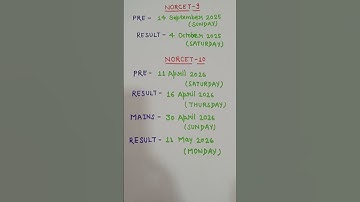 NORCET-9
PRE - 14 September 2025
(SUNDAY)
RESULT - 4 October 2025
(SATURDAY)
NORCET-10
PRE - 11 April 2026
(SATURDAY)
RESULT - 16 April 2026
(THURSDAY)
MAINS - 30 April 2026
(SUNDAY)
RESULT - 11 May 2026
(MONDAY)